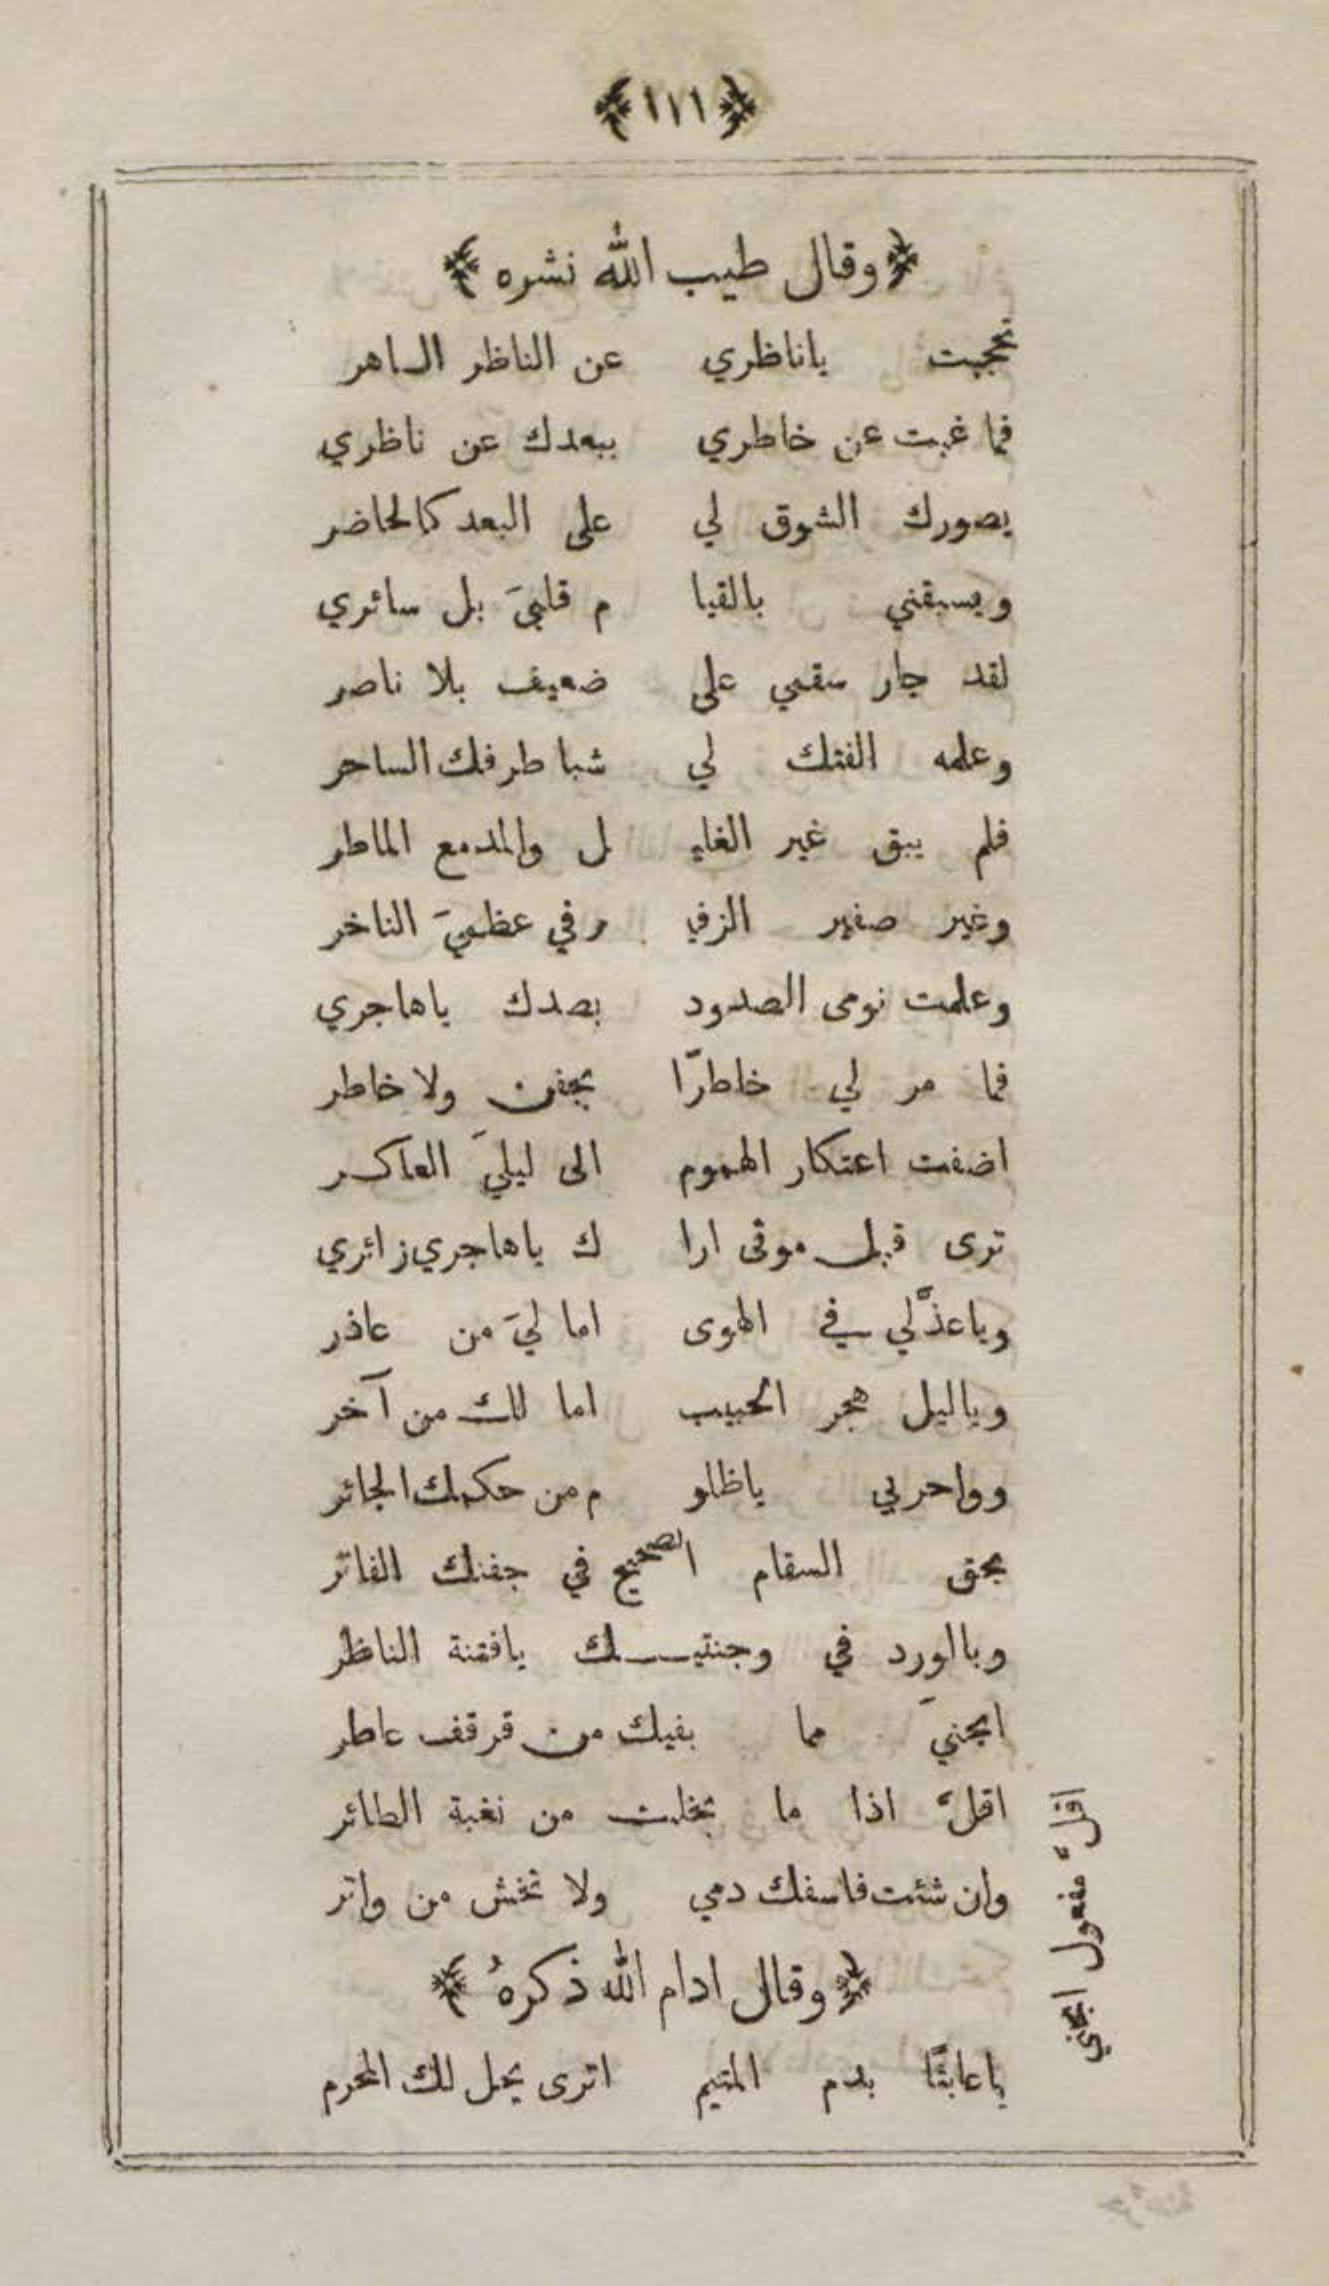 ﴿١١١﴾
﴿وقال طيب الله نشره﴾
تحجبت ياناظري عن الناظر الساهر
فما غبت عن خاطري ببعدك عن ناظري
يصورك الشوق لي على البعد كالحاضر
ويسبقني بالقيا م قلبيَ بل سائري
لقد جار سقمي على ضعيف بلا ناصر
وعلمه الفتك لي شبا طرفك الساحر
فلم يبق غير الغليـ ل والمدمع الماطر
وغير صفير الزفيـ ر في عظميَ الناخر
وعلمت نومى الصدود بصدك ياهاجري
فما مر لي خاطرًا بجفن ولا خاطر
اضفت اعتكار الهموم الى ليليَ العاكر
ترى قبل موتى ارا ك ياهاجري زائري
وياعذَّلي في الهوى اما ليَ من عاذر
وياليل هجر الحبيب اما لك من آخر
وواحربي ياظلو م من حكمك الجائر
بحق السقام الصحيح في جفنك الفاتر
وبالورد في وجنتيـــك يافتنة الناظر
ابحنيَ مما بفيك من قرقف عاطر
اقلَّ اذا ما بخلت من نغبة الطائر
وان شئت فاسفك دمي ولا تخش من واتر
اقلَّ مفعول ابحني
﴿وقال ادام الله ذكرهُ﴾
ياعابثًا بدم المتيم اترى يحل لك المحرم